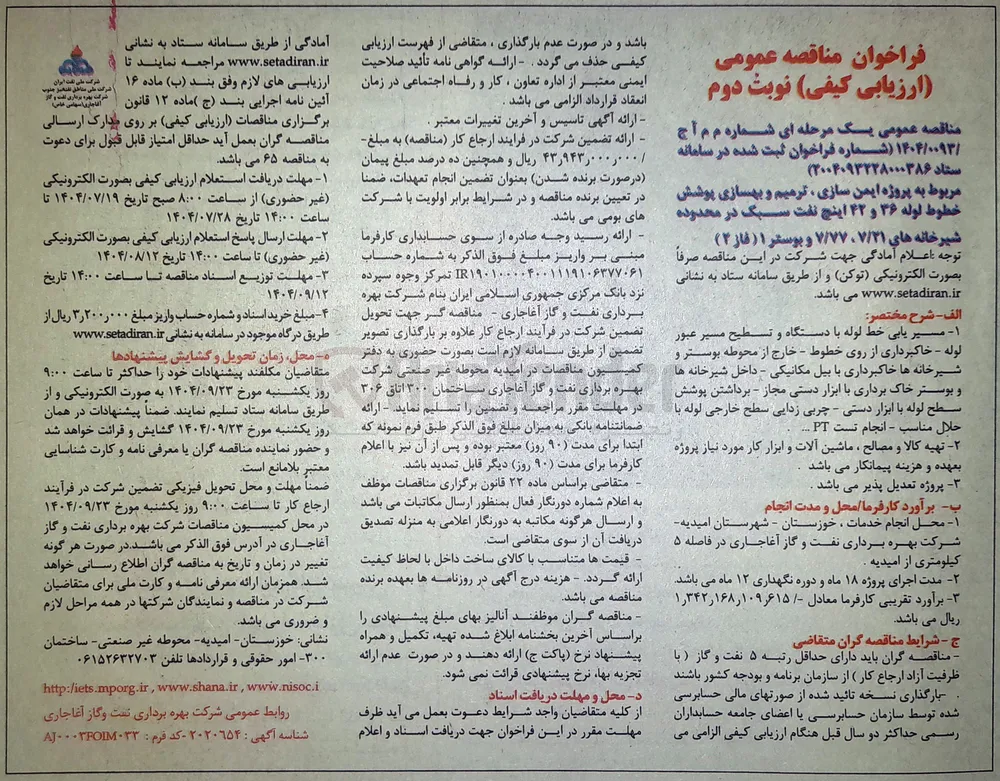 فراخوان مناقصه عمومی
(ارزیابی کیفی) نوبت دوم
مناقصه عمومی یک مرحله ای شماره م م آ ج
/۱۴۰۴/۰۰۹۳ (شماره فراخوان ثبت شده در سامانه
ستاد ۲۰۰۴۰۹۳۲۲۸۰۰۰۳۸۶)
مربوط به پروژه ایمن سازی ، ترمیم و بهسازی پوشش
خطوط لوله ۳۶ و ۴۲ اینچ نفت سبک در محدوده
شیرخانه های ۷/۲۱ ، ۷/۷۷ و بوستر ۱ ( فاز ۲ )
توجه :اعلام آمادگی جهت شرکت در این مناقصه صرفاً
بصورت الکترونیکی (توکن) و از طریق سامانه ستاد به نشانی
www.setadiran.ir می باشد.
الف- شرح مختصر:
۱- مسیر یابی خط لوله با دستگاه و تسطیح مسیر عبور
لوله - خاکبرداری از روی خطوط - خارج از محوطه بوستر و
شیرخانه ها خاکبرداری با بیل مکانیکی - داخل شیرخانه ها
و بوستر خاک برداری با ابزار دستی مجاز - برداشتن پوشش
سطح لوله با ابزار دستی - چربی زدایی سطح خارجی لوله با
حلال مناسب - انجام تست PT ...
۲- تهیه کالا و مصالح ، ماشین آلات و ابزار کار مورد نیاز پروژه
بعهده و هزینه پیمانکار می باشد .
۳- پروژه تعدیل پذیر می باشد .
ب- برآورد کارفرما/محل و مدت انجام
۱- محل انجام خدمات ، خوزستان - شهرستان امیدیه-
شرکت بهره برداری نفت و گاز آغاجاری در فاصله ۵
کیلومتری از امیدیه .
۲- مدت اجرای پروژه ۱۸ ماه و دوره نگهداری ۱۲ ماه می باشد.
۳- برآورد تقریبی کارفرما معادل -/ ۱٫۳۴۲٫۱۶۸٫۱۰۹٫۶۱۵
ریال می باشد.
ج - شرایط مناقصه گران متقاضی
- مناقصه گران باید دارای حداقل رتبه ۵ نفت و گاز ( با
ظرفیت آزاد ارجاع کار ) از سازمان برنامه و بودجه کشور باشند
. -بارگذاری نسخه تائید شده از صورتهای مالی حسابرسی
شده توسط سازمان حسابرسی یا اعضای جامعه حسابداران
رسمی حداکثر دو سال قبل هنگام ارزیابی کیفی الزامی می
باشد و در صورت عدم بارگذاری ، متقاضی از فهرست ارزیابی
کیفی حذف می گردد . -ارائه گواهی نامه تأئید صلاحیت
ایمنی معتبر از اداره تعاون ، کار و رفاه اجتماعی در زمان
انعقاد قرارداد الزامی می باشد .
- ارائه آگهی تاسیس و آخرین تغییرات معتبر .
- ارائه تضمین شرکت در فرایند ارجاع کار (مناقصه) به مبلغ-
/ ۴۳٫۹۴۳٫۰۰۰٫۰۰۰ ریال و همچنین ده درصد مبلغ پیمان
(درصورت برنده شدن) بعنوان تضمین انجام تعهدات، ضمنا
در تعیین برنده مناقصه و در شرایط برابر اولویت با شرکت
های بومی می باشد.
- ارائه رسید وجه صادره از سوی حسابداری کارفرما
مبنی بر واریز مبلغ فوق الذکر به شماره حساب
IR۱۹۰۱۰۰۰۰۴۰۰۱۱۱۹۱۰۶۳۷۷۰۶۱ تمرکز وجوه سپرده
نزد بانک مرکزی جمهوری اسلامی ایران بنام شرکت بهره
برداری نفت و گاز آغاجاری - مناقصه گر جهت تحویل
تضمین شرکت در فرآیند ارجاع کار علاوه بر بارگذاری تصویر
تضمین از طریق سامانه لازم است بصورت حضوری به دفتر
کمیسیون مناقصات در امیدیه محوطه غیر صنعتی شرکت
بهره برداری نفت و گاز آغاجاری ساختمان ۳۰۰ اتاق ۳۰۶
در مهلت مقرر مراجعه و تضمین را تسلیم نماید. - ارائه
ضمانتنامه بانکی به میزان مبلغ فوق الذکر طبق فرم نمونه که
ابتدا برای مدت (۹۰ روز) معتبر بوده و پس از آن نیز با اعلام
کارفرما برای مدت (۹۰ روز) دیگر قابل تمدید باشد.
- متقاضی براساس ماده ۲۲ قانون برگزاری مناقصات موظف
به اعلام شماره دورنگار فعال بمنظور ارسال مکاتبات می باشد
و ارسال هرگونه مکاتبه به دورنگار اعلامی به منزله تصدیق
دریافت آن از سوی متقاضی است.
- قیمت ها متناسب با کالای ساخت داخل با لحاظ کیفیت
ارائه گردد. - هزینه درج آگهی در روزنامه ها بعهده برنده
مناقصه می باشد.
- مناقصه گران موظفند آنالیز بهای مبلغ پیشنهادی را
براساس آخرین بخشنامه ابلاغ شده تهیه، تکمیل و همراه
پیشنهاد نرخ (پاکت ج) ارائه دهند و در صورت عدم ارائه
تجزیه بها، نرخ پیشنهادی قرائت نمی شود.
د- محل و مهلت دریافت اسناد
از کلیه متقاضیان واجد شرایط دعوت بعمل می آید ظرف
مهلت مقرر در این فراخوان جهت دریافت اسناد و اعلام
شرکت ملی نفت ایران
شرکت ملی مناطق نفتخیز جنوب
شرکت بهره برداری نفت و گاز
آغاجاری(سهامی خاص)
آمادگی از طریق سامانه ستاد به نشانی
www.setadiran.ir مراجعه نمایند تا
ارزیابی های لازم وفق بند (ب) ماده ۱۶
آئین نامه اجرایی بند (ج )ماده ۱۲ قانون
برگزاری مناقصات (ارزیابی کیفی) بر روی مدارک ارسالی
مناقصه گران بعمل آید حداقل امتیاز قابل قبول برای دعوت
به مناقصه ۶۵ می باشد.
۱- مهلت دریافت استعلام ارزیابی کیفی بصورت الکترونیکی
(غیر حضوری) از ساعت ۸:۰۰ صبح تاریخ ۱۴۰۴/۰۷/۱۹ تا
ساعت ۱۴:۰۰ تاریخ ۱۴۰۴/۰۷/۲۸
۲- مهلت ارسال پاسخ استعلام ارزیابی کیفی بصورت الکترونیکی
(غیر حضوری) تا ساعت ۱۴:۰۰ تاریخ ۱۴۰۴/۰۸/۱۲
۳- مهلت توزیع اسناد مناقصه تا ساعت ۱۴:۰۰ تاریخ
۱۴۰۴/۰۹/۱۲
۴- مبلغ خرید اسناد و شماره حساب واریز مبلغ ۳٫۲۰۰٫۰۰۰ ریال از
طریق درگاه موجود در سامانه به نشانی www.setadiran.ir
ه- محل، زمان تحویل و گشایش پیشنهادها
متقاضیان مکلفند پیشنهادات خود را حداکثر تا ساعت ۹:۰۰
روز یکشنبه مورخ ۱۴۰۴/۰۹/۲۳ به صورت الکترونیکی و از
طریق سامانه ستاد تسلیم نمایند. ضمناً پیشنهادات در همان
روز یکشنبه مورخ ۱۴۰۴/۰۹/۲۳ گشایش و قرائت خواهد شد
و حضور نماینده مناقصه گران با معرفی نامه و کارت شناسایی
معتبر بلامانع است.
ضمناً مهلت و محل تحویل فیزیکی تضمین شرکت در فرآیند
ارجاع کار تا ساعت ۹:۰۰ روز یکشنبه مورخ ۱۴۰۴/۰۹/۲۳
در محل کمیسیون مناقصات شرکت بهره برداری نفت و گاز
آغاجاری در آدرس فوق الذکر می باشد.در صورت هر گونه
تغییر در زمان و تاریخ به مناقصه گران اطلاع رسانی خواهد
شد. همزمان ارائه معرفی نامه و کارت ملی برای متقاضیان
شرکت در مناقصه و نمایندگان شرکتها در همه مراحل لازم
و ضروری می باشد.
نشانی: خوزستان- امیدیه- محوطه غیر صنعتی- ساختمان
۳۰۰- امور حقوقی و قراردادها تلفن ۰۶۱۵۲۶۳۲۷۰۳
http:/iets.mporg.ir , www.shana.ir , www.nisoc.i
روابط عمومی شرکت بهره برداری نفت وگاز آغاجاری
شناسه آگهی : ۲۰۲۰۶۵۴ -کد فرم : AJ-۰۰۰۳FOIM۰۳۳